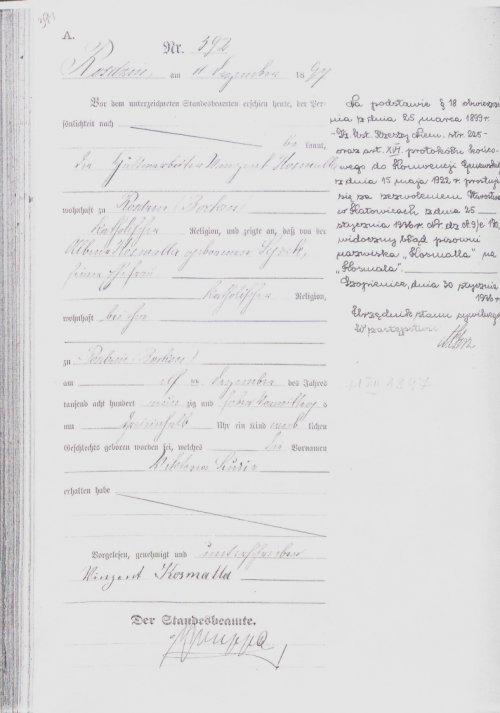 A.
Nr. 392
Rosdzin, am 11 Dezember 1897
Vor dem unterzeichneten Standesbeamten erschien heute, der Per-
sönlichkeit nach
be kannt,
der Hüttenarbeiter Vinzent Kosmalla
wohnhaft zu Rosdzin
katholischer Religion, und zeigte an, daß von der
Albina Kosmalla geborenen
seiner Ehefrau
katholischer Religion,
wohnhaft bei ihm
zu Rosdzin
am elf ten Dezember des Jahres
tausend acht hundert neun zig und sieben Vormittags
um Uhr ein Kind weib lichen
Geschlechts geboren worden sei, welches die Vornamen
Viktoria Luzie
erhalten habe
Vorgelesen, genehmigt und unterschrieben
Vinzent Kosmalla
Der Standesbeamte.
Na podstawie § 18
nia z dnia 25 marca 1899 r.
Dz. Ust. Rzeszy Niem. str. 225
oraz art. XVI protokołu końco-
wego do Konwencji Genewskiej
z dnia 15 maja 1922 r. prostuje
się za zezwoleniem Starostwa
w Katowicach z dnia 25
stycznia 1936 r.
widoczny błąd pisowni
nazwiska "Kosmalla" na
"Kosmala".
Szopienice, dnia 30 stycznia
1936 r.
Urzędnik stanu cywilnego
W zastępstwie
11 XII 1897